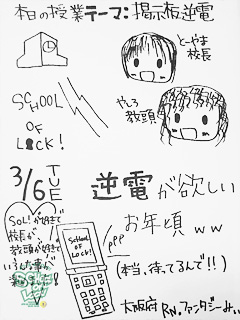 本日の授業テーマ:掲示板逆電
とーやま
校長
やしろ
教頭
SCHOOL
OF
LOCK!
3/6
TUE
逆電が欲しい
お年頃ww
SOL!が好きで
校長が、
教頭が好きで
いろんな事が
School
of
Lock!
PPP
(本当、待ってるんで!!)
大阪府 RN.ファンタジーみぃ